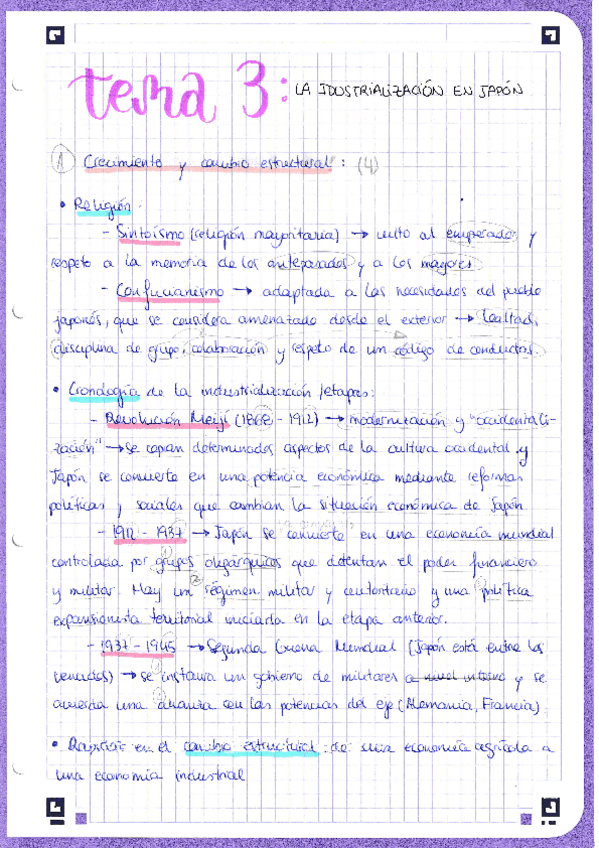 tema 3: LA IDUSTRIALIZACIÓN EN JAPÓN
A Crecimiento y cambio estructural: (4)
• Religión.
- Sintoísmo (religión mayoritaria) → culto al emperador y
respeto a la memoria de los antepasados y a los mayores
- Confucianismo → adaptada a las necesidades del pueblo
japonés, que se considera amenazado desde el exterior → lealtad,
disciplina de grupo, colaboración y respeto de un código de conductas.
• Cronología de la industrialización /etapas:
- Revolución Meiji (1868 - 1912) → modernización y "occidentali-
zación" → se copan determinados aspectos de la cultura occidental y
Japón se convierte en una potencia económica mediante reformas
políticas y sociales que cambian la situación económica de Japón.
- 1912 - 1937 → Japón se convierte en una economía mundial
controlada por grupos oligárquicos que detentan el poder financiero
y militar. Hay un régimen militar y autoritario y una política
expansionista territorial iniciada en la etapa anterior.
- 1937 - 1945 → Segunda Guerra Mundial (Japón está entre los
vencidos) → se instaura un gobierno de militares a nivel interno y se
acuerda una alianza con las potencias del eje (Alemania, Francia)
• Rapidez en el cambio estructural: de una economía agrícola a
una economía industrial